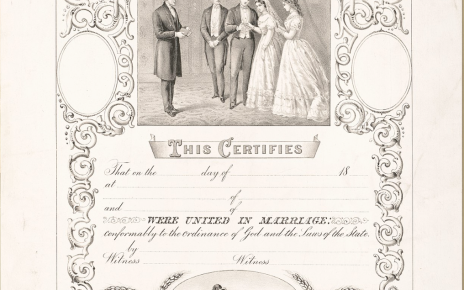 THIS CERTIFIES
That on the day of 18
at
of
and of
WERE UNITED IN MARRIAGE:
conformably to the Ordinance of God and the Laws of the State.
by
Witness Witness